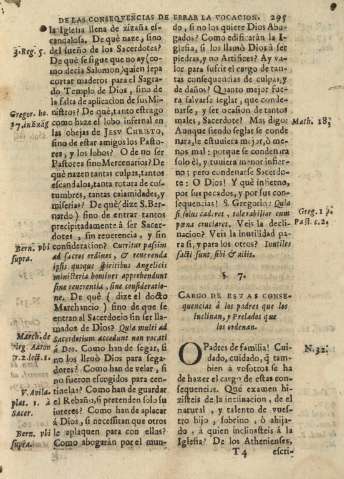 DE LAS CONSEQVENCIAS DE ERRAR LA VOCACION. 295
la Iglesia llena de zizaña es-
candalosa. De què nace, sino
del sueño de los Sacerdotes?
De què se sigue que no ay (co-
mo decia Salomon) quien sepa
cortar maderos para el Sagra-
do Templo de Dios, sino de
la falta de aplicacion de sus Mi-
nistros? De què, tanto estrago
como haze el lobo infernal en
las obejas de JESV CHRISTO,
sino de estar amigos los Pasto-
res, y los lobos? O de no ser
Pastores sino Mercenarios? De
què nazen tantas culpas, tantos
escandalos, tanta rotura de cos-
tumbres, tantas calamidades, y
miserias? De què (dize S. Ber-
nardo) sino de entrar tantos
precipitadamente à ser Sacer-
dotes, sin reverencia, y sin
consideracion? Curritur passim
ad sacros ordines, & reverenda
ipsis quoque spiritibus Angelicis
ministeria homines apprehendunt
sine reverentia, sine consideratio-
ne. De què (dize el docto
Marchancio) sino de que se
entran al Sacerdocio sin ser lla-
mados de Dios? Quia multi ad
Sacerdotium accedunt non vocati
à Deo. Como han de segar, si
no los lluvò Dios para sega-
dores? Como han de velar, si
no fueron escogidos para cen-
tinelas? Como han de guardar
el Rebaño, si pretenden solo su
interes? Como han de aplacar
à Dios, si necessitan que otros
le aplaquen para con ellas?
Como abogaràn por el mun-
3. Reg. 5.
Gregor. ho.
17. in Evãg.
Bern. vbi
supra.
March. de
Virg. Aaron
V. Avila.
plat. 1. à
Sacer.
Bern. vbi
supra.
do, si no los quiere Dios Abo-
gados? Como edificaràn la I-
glesia, si los llamò Dios à ser
piedras, y no Artifices? Ay va-
lor para sufrir el cargo de tan-
tas consequencias de culpas, y
de daños? Quanto mejor fue-
ra salvarse seglar, que conde-
narse, y ser ocasion de tantos
males, Sacerdote? Mas digo:
Aunque siendo seglar se conde-
nara, le estuviera mejor, ò me-
nos mal; porque se condenara
solo èl, y tuviera menor infier-
no; pero condenarse Sacerdo-
te: O Dios! Y què infierno,
por sus pecados, y por sus con-
sequencias! S. Gregorio: Quia
si solus cadèret, tolerabilior eum
pœna cruciaret. Veis la decli-
nacion? Veis la inutilidad pa-
ra sì, y para los otros? Inutiles
facti sunt, sibi & aliis.
Math. 18.
Greg. 1. p.
Past. c. 2.
§. 7.
CARGO DE ESTAS CONSE-
quencias à los padres que los
inclinan, y Prelados que
los ordenan.
O Padres de familia! Cui-
dado, cuidado, q̃ tam-
bien à vosotros se ha
de hazer el cargo de estas con-
sequencias. Què examen hi-
zisteis de la inclinacion, de el
natural, y talento de vues-
tro hijo, sobrino, ò ahija-
do, à quien inclinasteis à la
Iglesia? De los Athenienses,
N. 32.
T 4 escri-